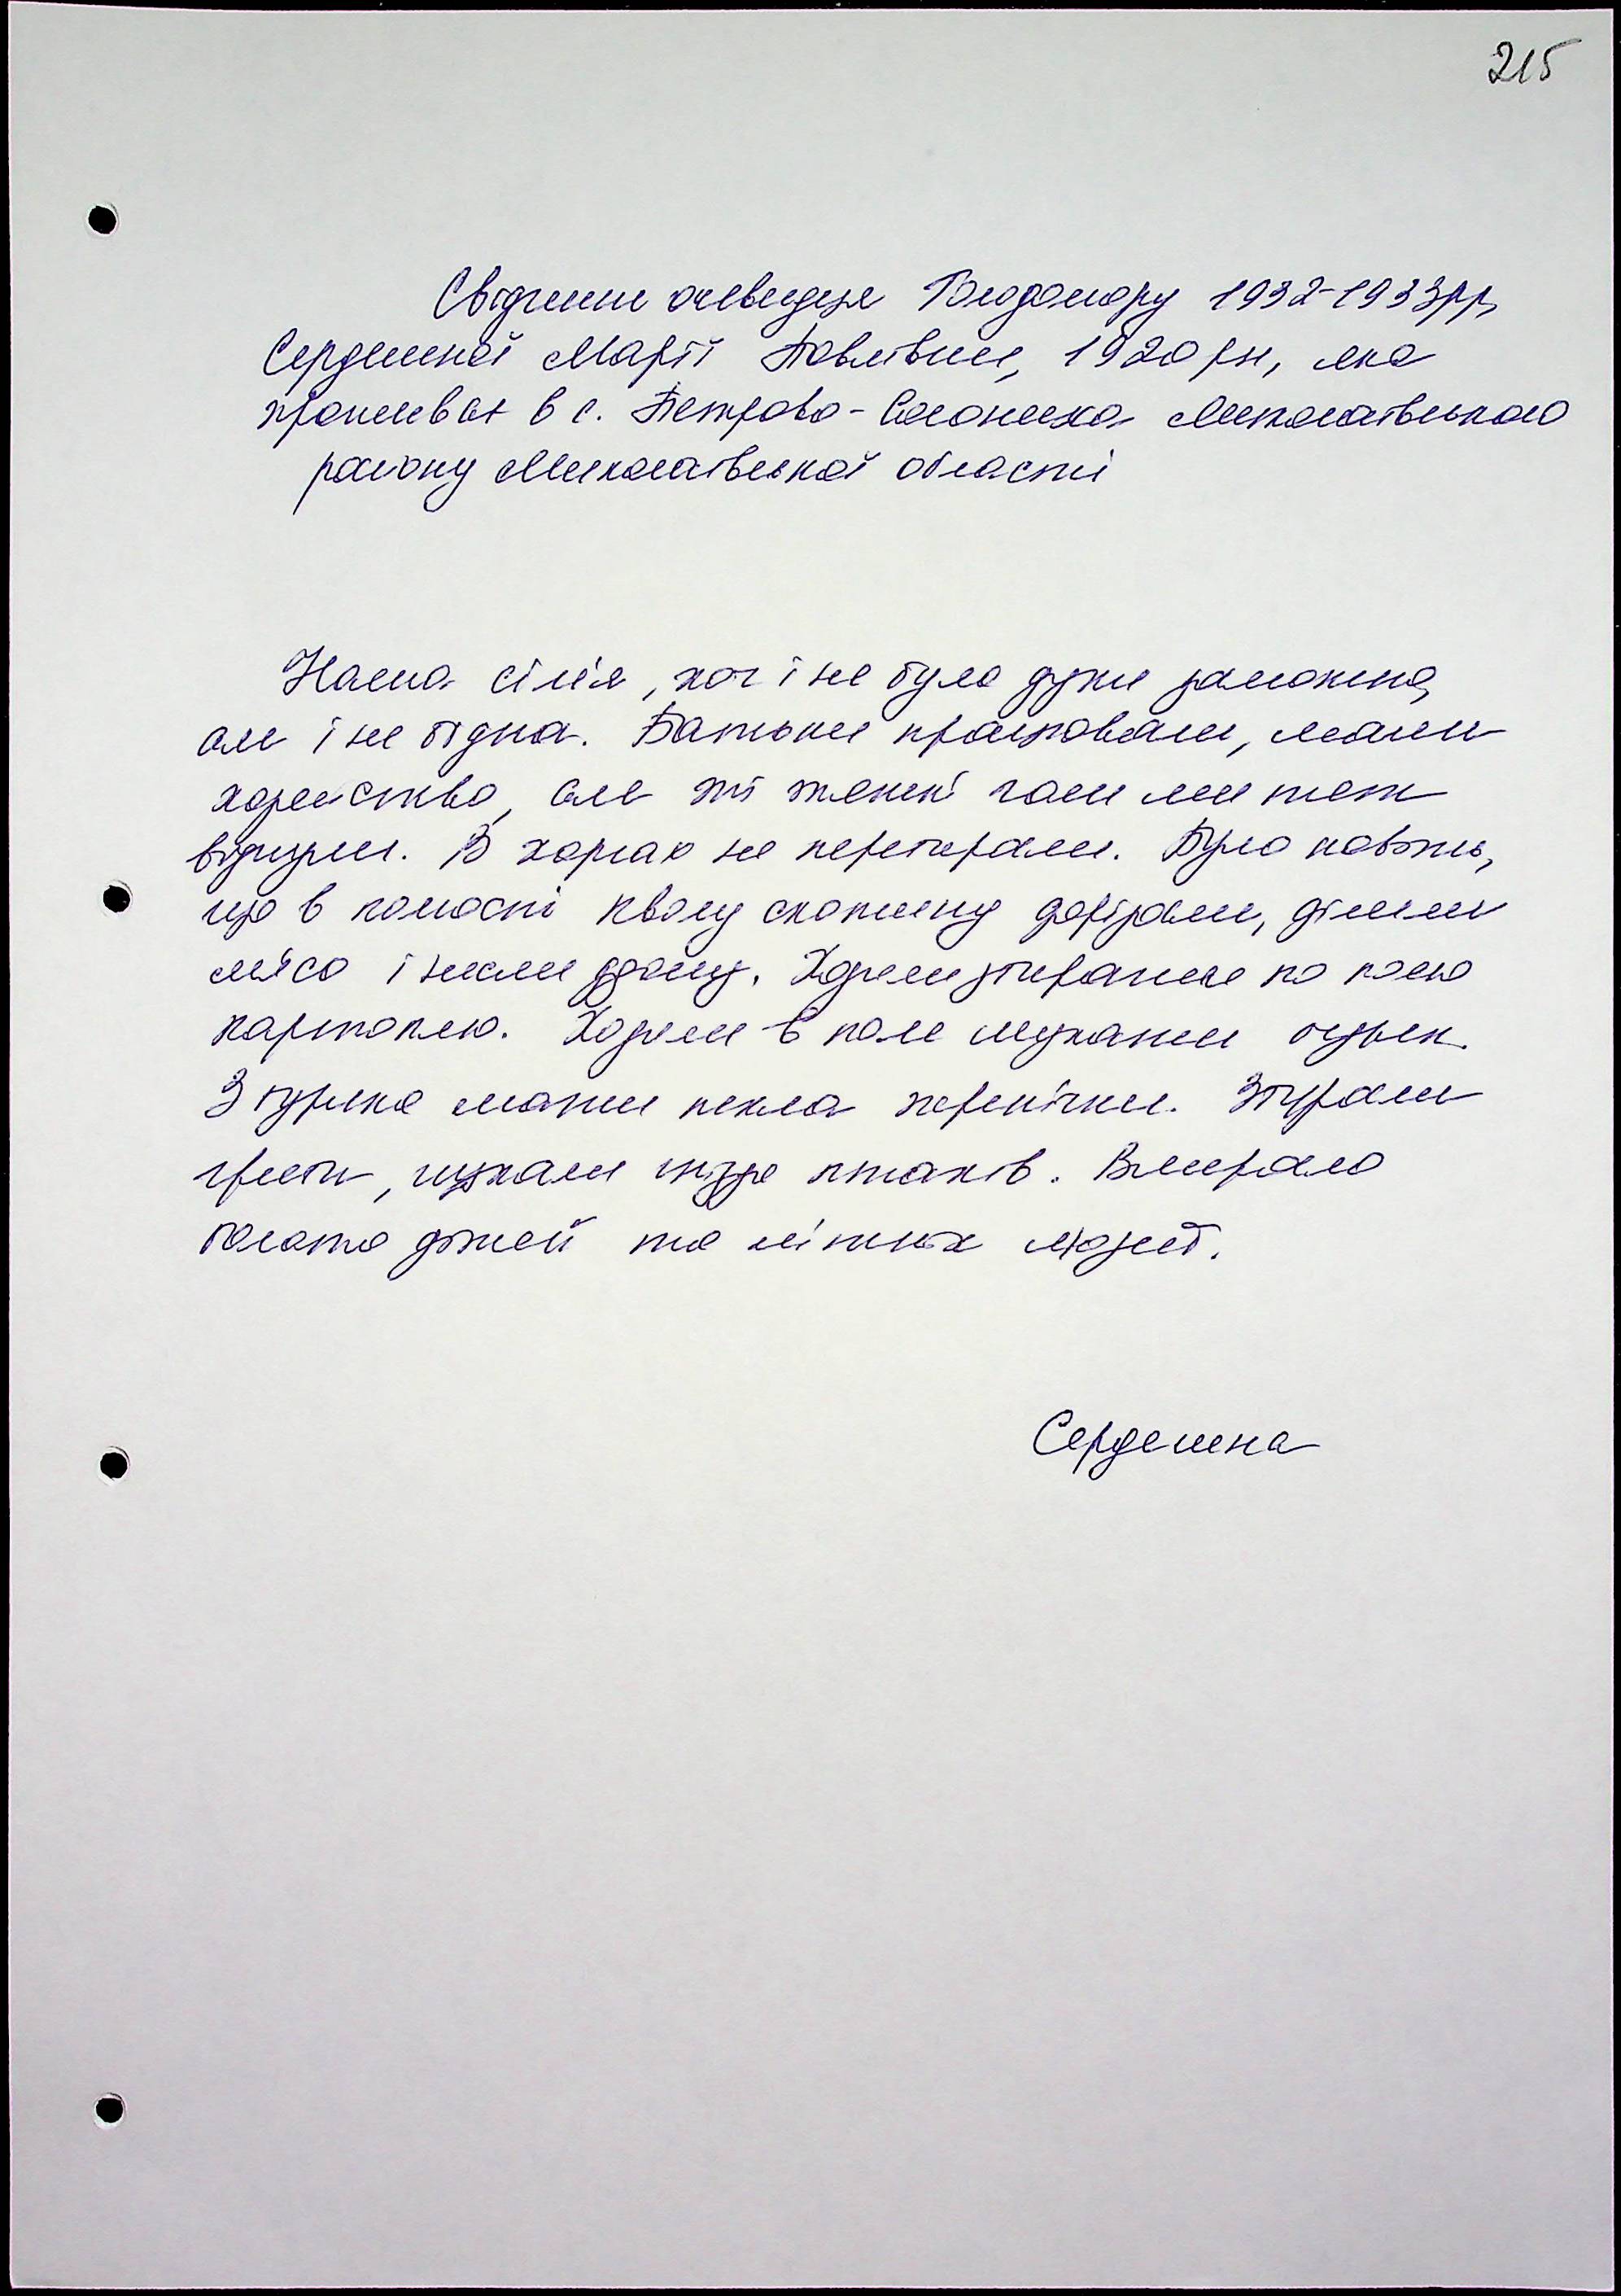 215
Свідчення очевидця Голодомору 1932-1933рр,
Сердешної Марії Павлівни, 1920 рн, яка
проживає в с. Петрово-Солониха Миколаївського
району Миколаївської області
Наша сім'я, хоч і не була дуже заможна,
але і не бідна. Батьки працювали, мали
хазяйство, але ті тяжкі часи ми теж
відчули. В харчах не перебирали. Було навіть,
що в колгоспі кволу скотину дорізали, ділили
м'ясо і несли додому. Ходили збирали по полю
картоплю. Ходили в поле шукати
З мати пекла перепічки. Збирали
шукали птахів. Вмирало
багато дітей та літніх людей.
Сердешна